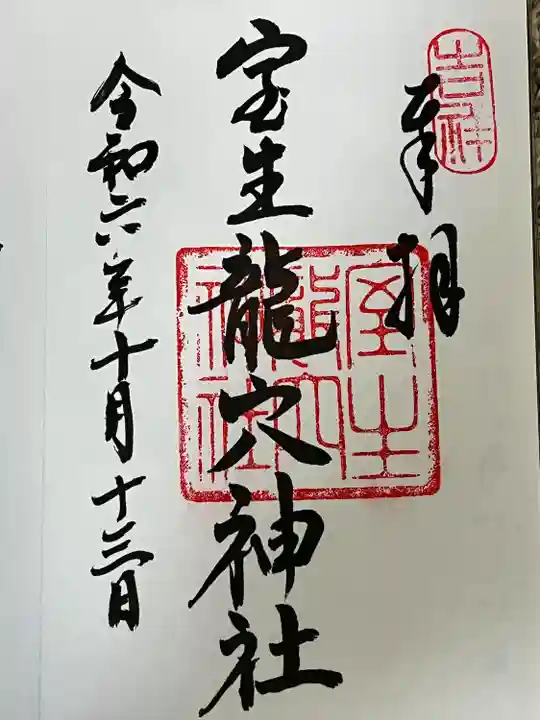 吉祥
奉拝
室生
龍穴
神社
室生龍穴神社
令和六年十月十三日